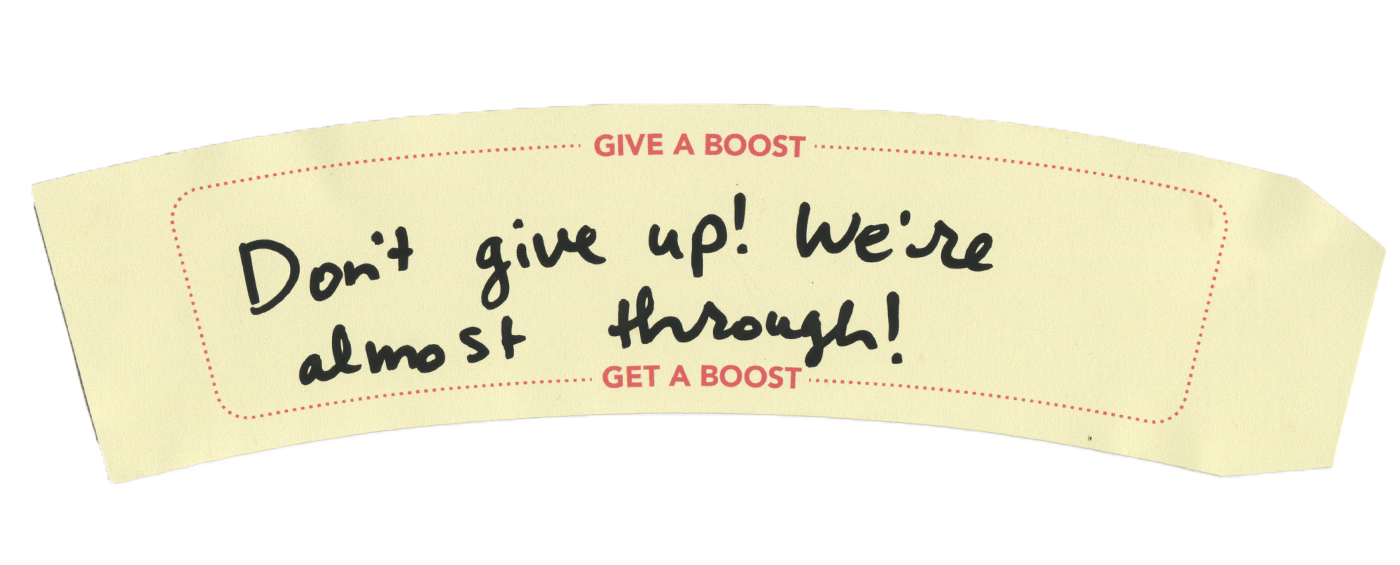 GIVE A BOOST
Don't give up! We're
almost through!
GET A BOOST